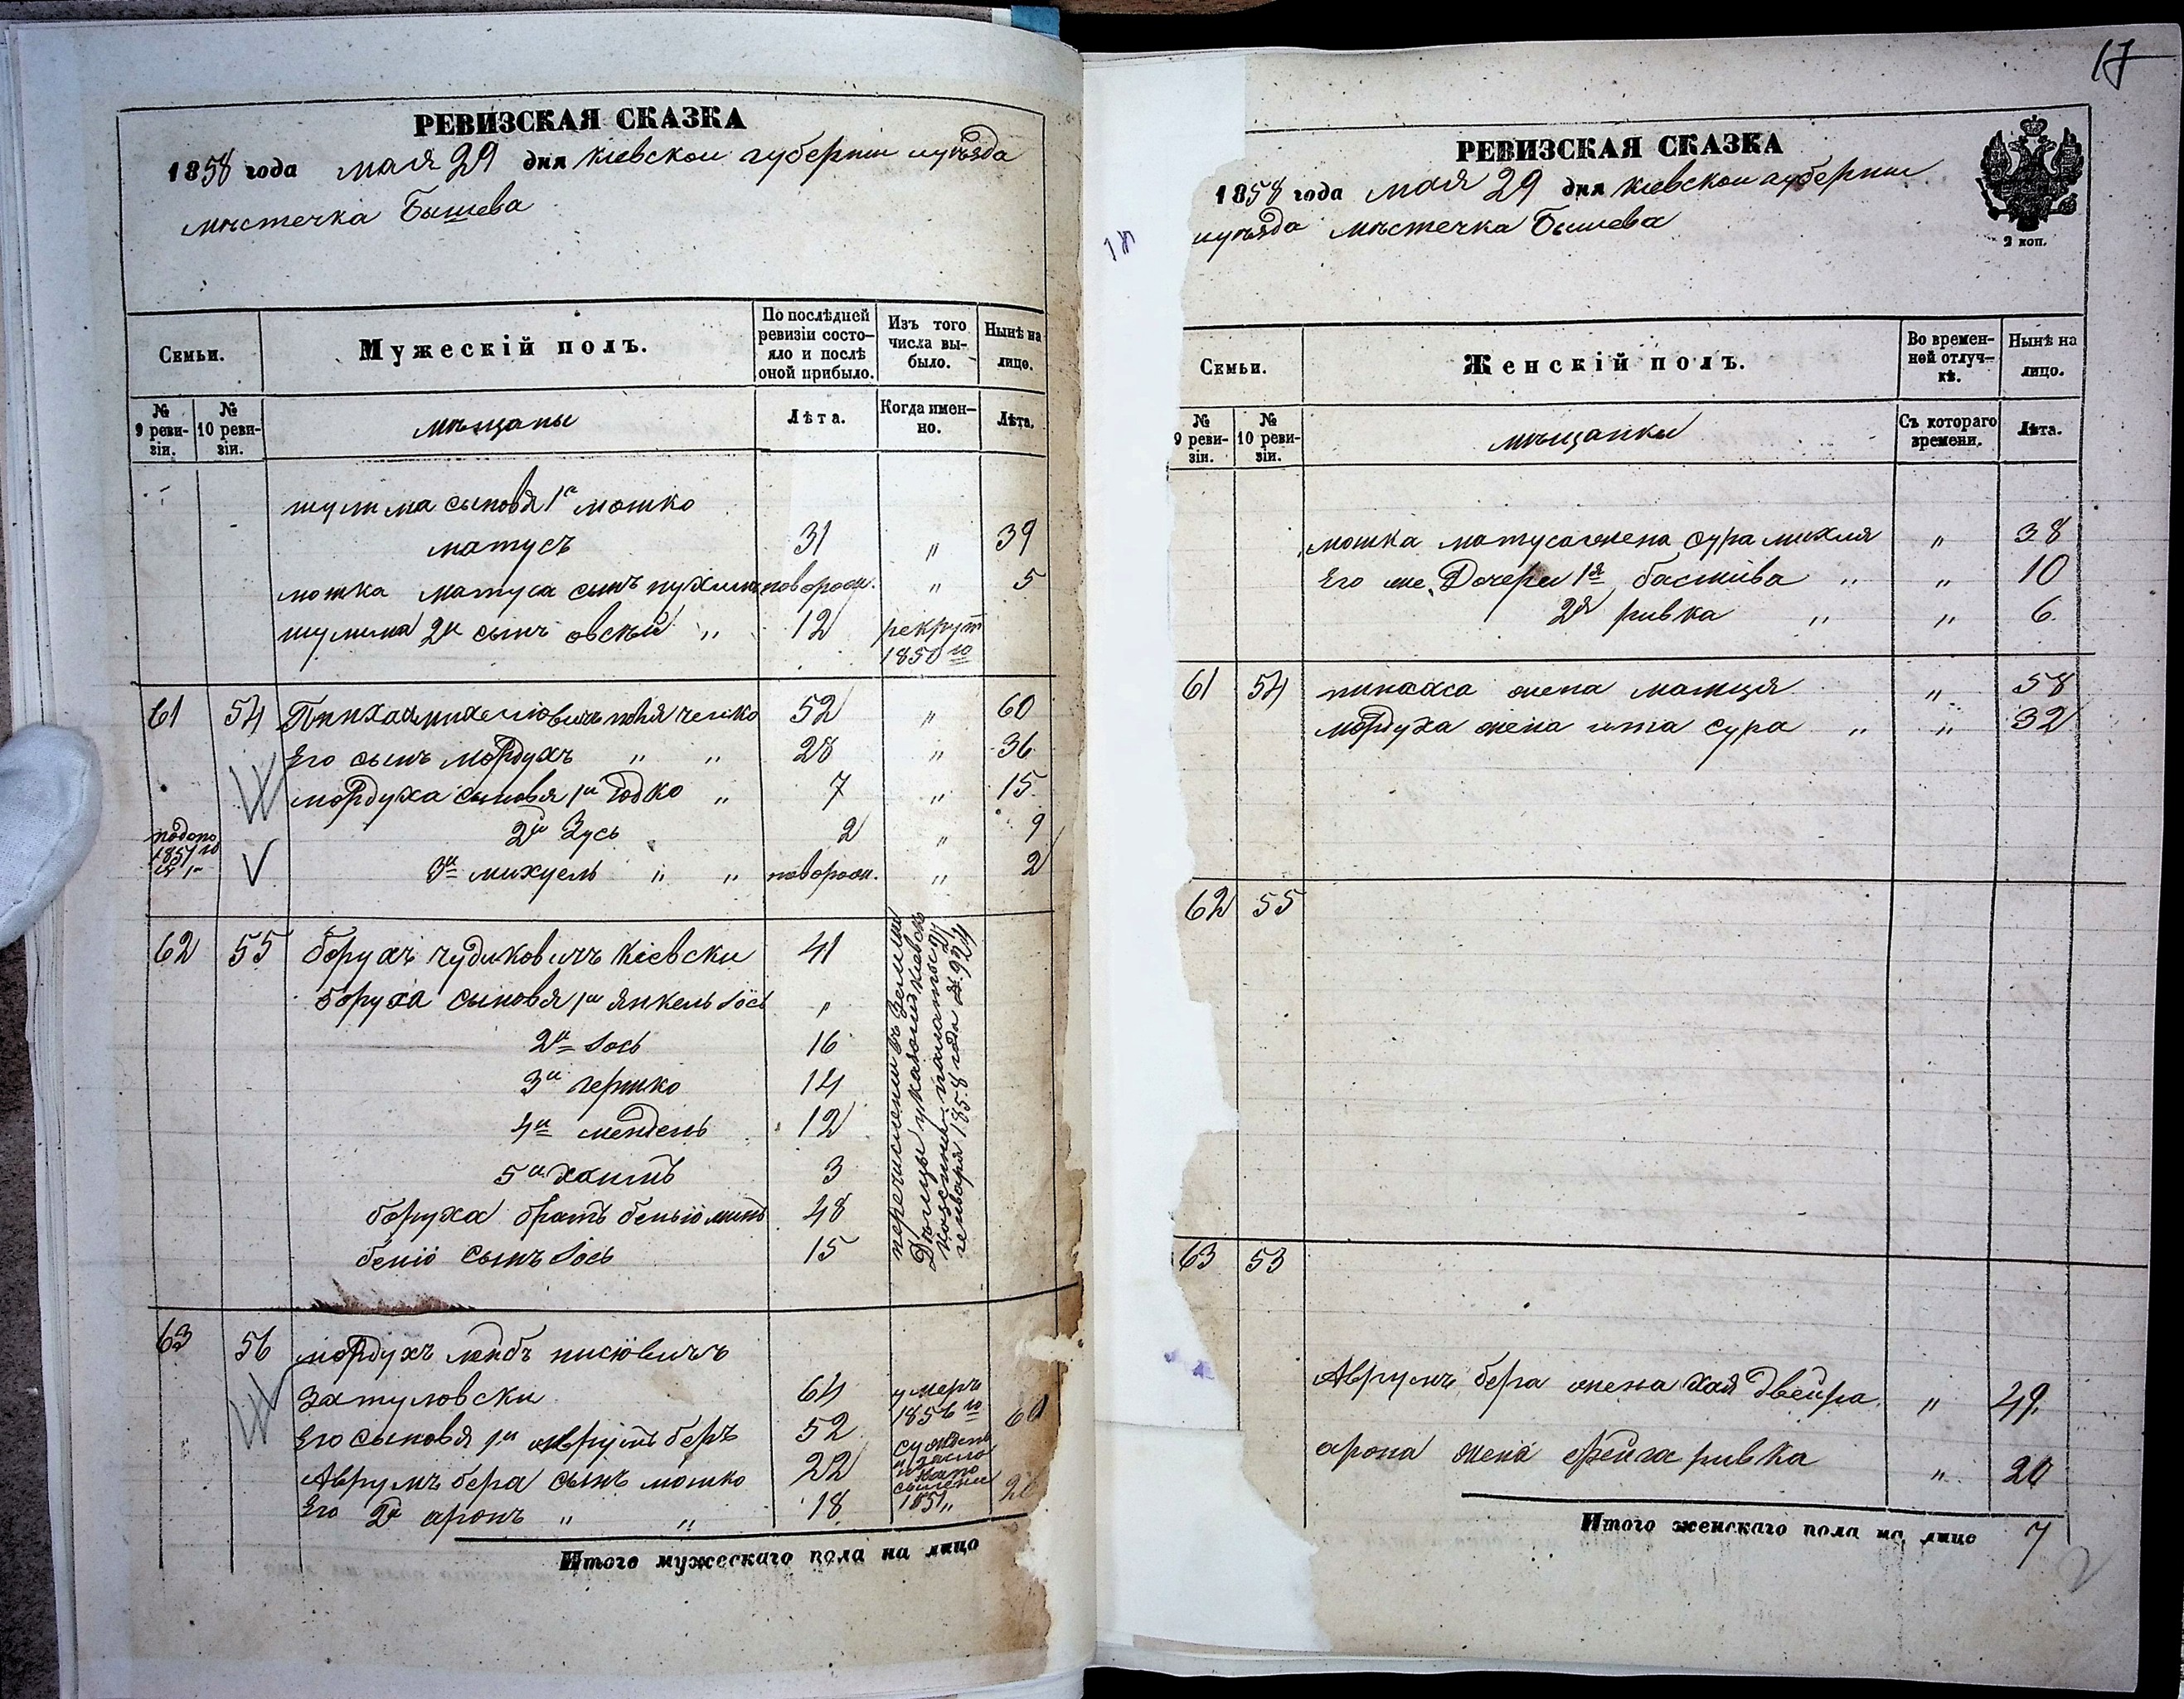 РЕВИЗСКАЯ СКАЗКА
1858 года мая 29 дня киевской губерніи и уѣзда
мѣстечка Бышева
Семьи.
Мужескій полъ.
По послѣдней ревизіи состо-
яло и послѣ оной прибыло.
Изъ того числа вы-
было.
Нынѣ на лицо.
№ 9 реви-
зіи.
№ 10 реви-
зіи.
мѣщаны
Лѣта.
Когда имен-
но.
Лѣта.
шулима сыновя 1й мошко
матусъ 31 " 39
мошка матуса сынъ новорож. " 5
шулима 2й сынъ овсѣй " 12 рекрут
1850 го
61 54 52 " 60
Его сынъ мордухъ " " 28 " 36
мордуха сыновя 1й Іодко " 7 " 15
2й Зусь 2 " 9
3й михуель " " новорож. " 2
1857 го
62 55 борухъ чудиковичъ кіевски 41
боруха сыновя 1й янкель Іось "
2й Іось 16
3й гершко 14
4й мендель 12
5й хаимъ 3
боруха братъ беньіоминъ 48
беніо сынъ Іось 15
перечислены въ Земле
Дѣльцы указомъ Кіевск
казенной палаты 27
генваря 1858 года № 924
63 56 мордухъ лейбъ
Затуловски 64 умеръ
1856 го
Его сыновя 1й аврумъ беръ 52 60
Аврумъ бера сынъ мошко 22
1851 "
Его 2й аронъ " " 18 26
Итого мужескаго пола на лицо
17
РЕВИЗСКАЯ СКАЗКА
1858 года мая 29 дня киевской губерніи
и уѣзда мѣстечка Бышева
2 коп.
Семьи.
Женскій полъ.
Во времен-
ной отлуч-
кѣ.
Нынѣ на лицо.
№ 9 реви-
зіи.
№ 10 реви-
зіи.
мѣщанки
Съ котораго времени.
Лѣта.
мошка матуса жена сура михля " 38
Его же Дочери 1я басшива " " 10
2я ривка " " 6
61 54 пинхаса жена " 58
мордуха жена ита сура " " 32
62 55
63 53
Аврумъ бера жена хая двейра " 49
арона жена фейга ривка " 20
Итого женскаго пола на лицо 7